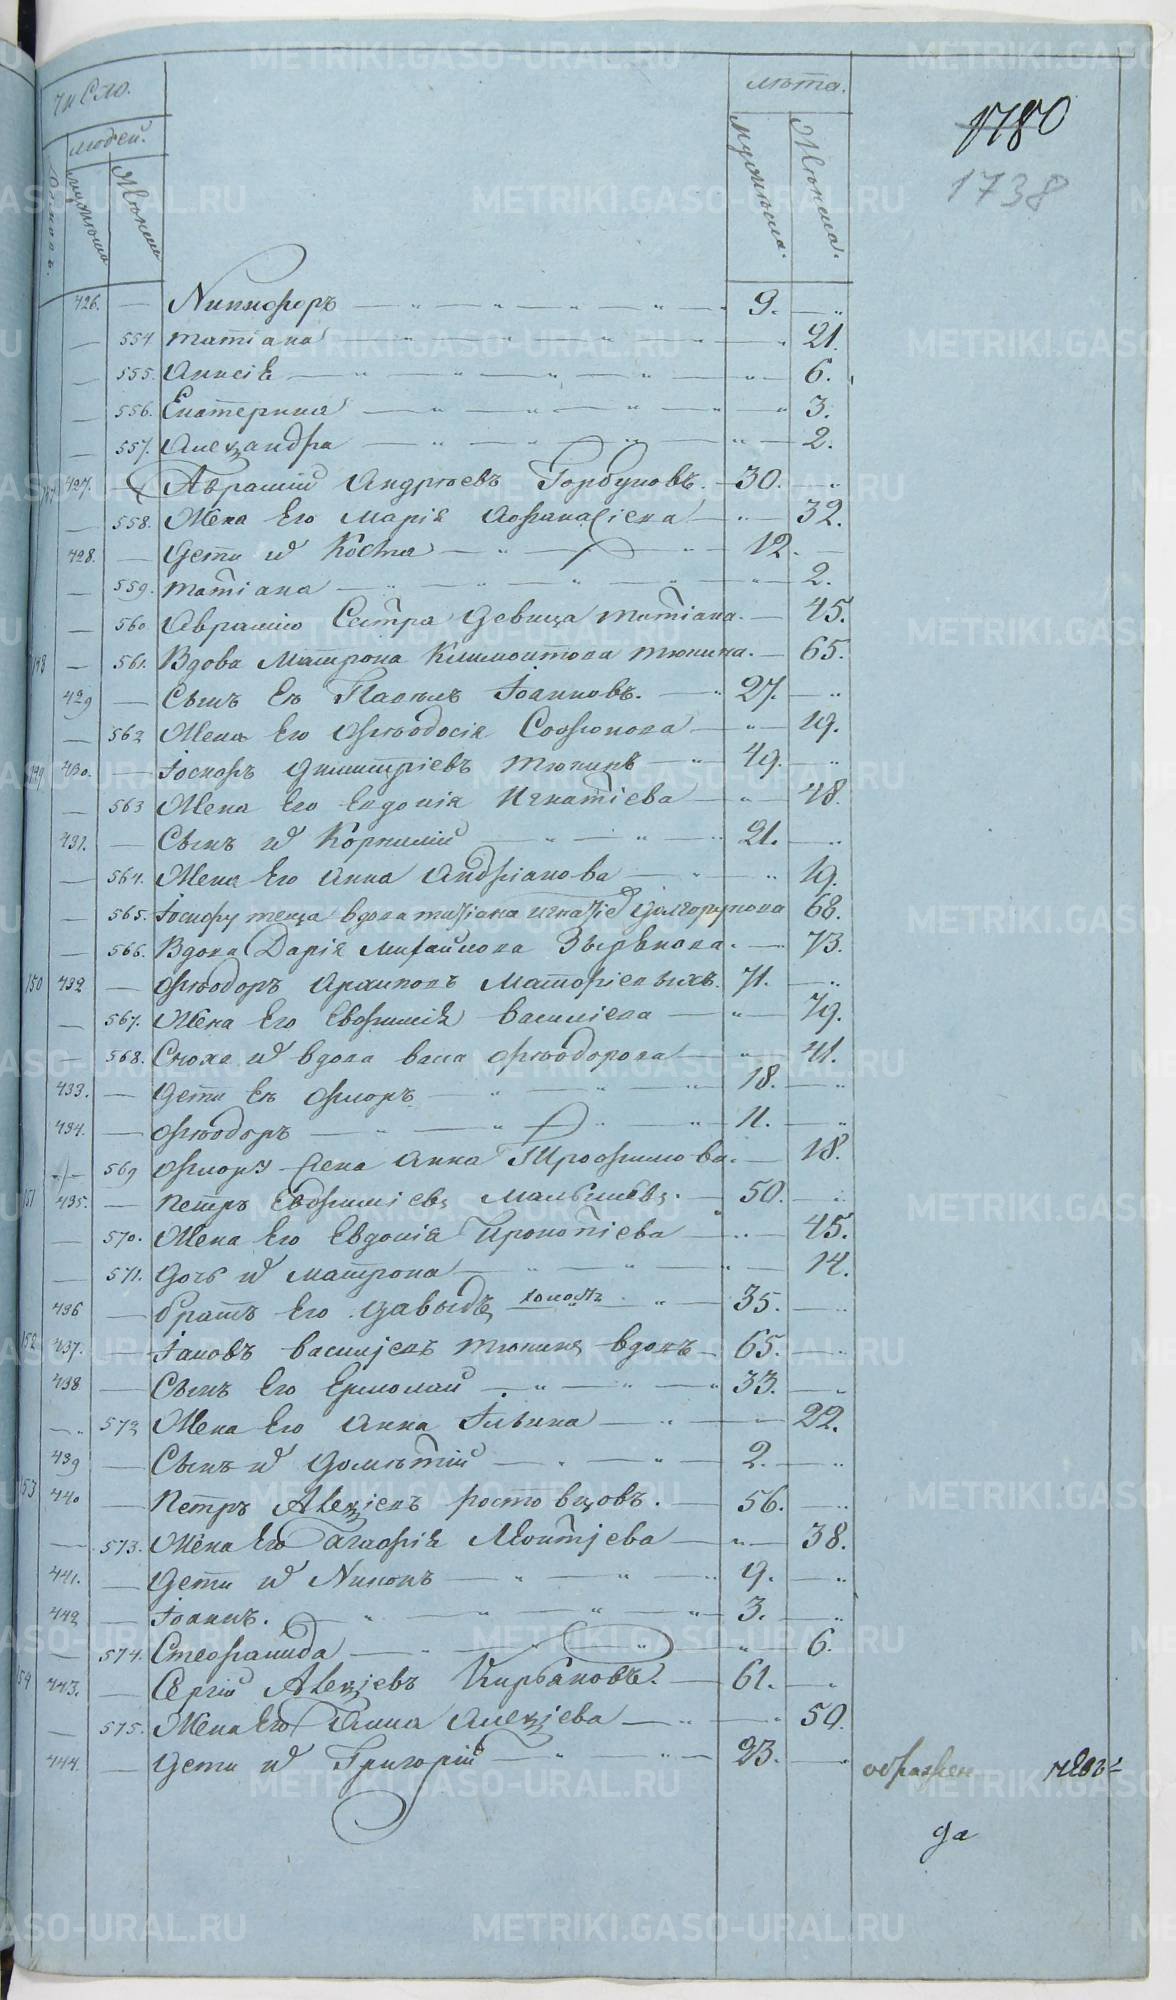 число. лѣта.
людей.
мужеска Женска мужеска. Женска.
1780
1738
426. — Никифоръ — 9. —
— 554 татіана — 21.
— 555. Анисія — 6.
— 556. Екатерина — 3.
— 557. Алеѯандра — 2.
147 427. Аврамій Андреевъ Горбуновъ. — 30. —
— 558. Жена Его Марія Афанасіева — 32.
428. — Дети и҆ Косма — 12. —
— 559. татіана — 2.
— 560 Аврамію Сестра девица татіана. — 45.
148 — 561. Вдова Матрона Климонтова тюнина. — 65.
429 — Сынъ Ея Павелъ Іоанновъ. — 27. —
— 562 Жена Его Феодосія Софронова — 19.
149 430. — Іосифъ Димитріевъ тюнинъ — 49. —
— 563 Жена Его Евдокія Игнатіева — 48.
431. — Сынъ и҆ Корнилій — 21. —
— 564. Жена Его Анна Андріанова — 19.
— 565. Іосифу теща вдова татіана игнатіе Долгорукова 68.
— 566. Вдова Дарія Михайлова Зырянова. — 73.
150 432 — Феодоръ Матфіевыхъ. 71. —
— 567. Жена Его Евфимія василіева — 79.
— 568. Сноха и҆ вдова васа феодорова — 41.
433. — Дети Ея Флоръ — 18. —
434. — Феодоръ — 11. —
— 569 Флору жена Анна Трофимова. — 18.
151 435. — Петръ Евфиміевъ Малышевъ. 50. —
— 570. Жена Его Евдокія Прокопіева — 45.
— 571. Дочь и҆ матрона — 14.
436 — братъ Его Давыдъ холостъ — 35. —
152 437. — Іаковъ василіевъ тюнинъ вдовъ — 65. —
438 — Сынъ Его Ермолай — 33. —
— 572 Жена Его Анна Ильина — 22.
439 — Сынъ и҆ Дометій — 2. —
153 440 — Петръ Алеѯіевъ ростовцовъ. — 56. —
— 573. Жена Его агафія Леонтіева — 38.
441. — Дети и҆ Никонъ — 9. —
442 — Іоаннъ. — 3. —
— 574. Стефанида — 6.
154 443. — Сергій Алеѯіевъ Кирьяковъ. — 61. —
— 575. Жена Его Анна Алеѯіева — 50.
444. — Дети и҆ Григорій — 23. —
да